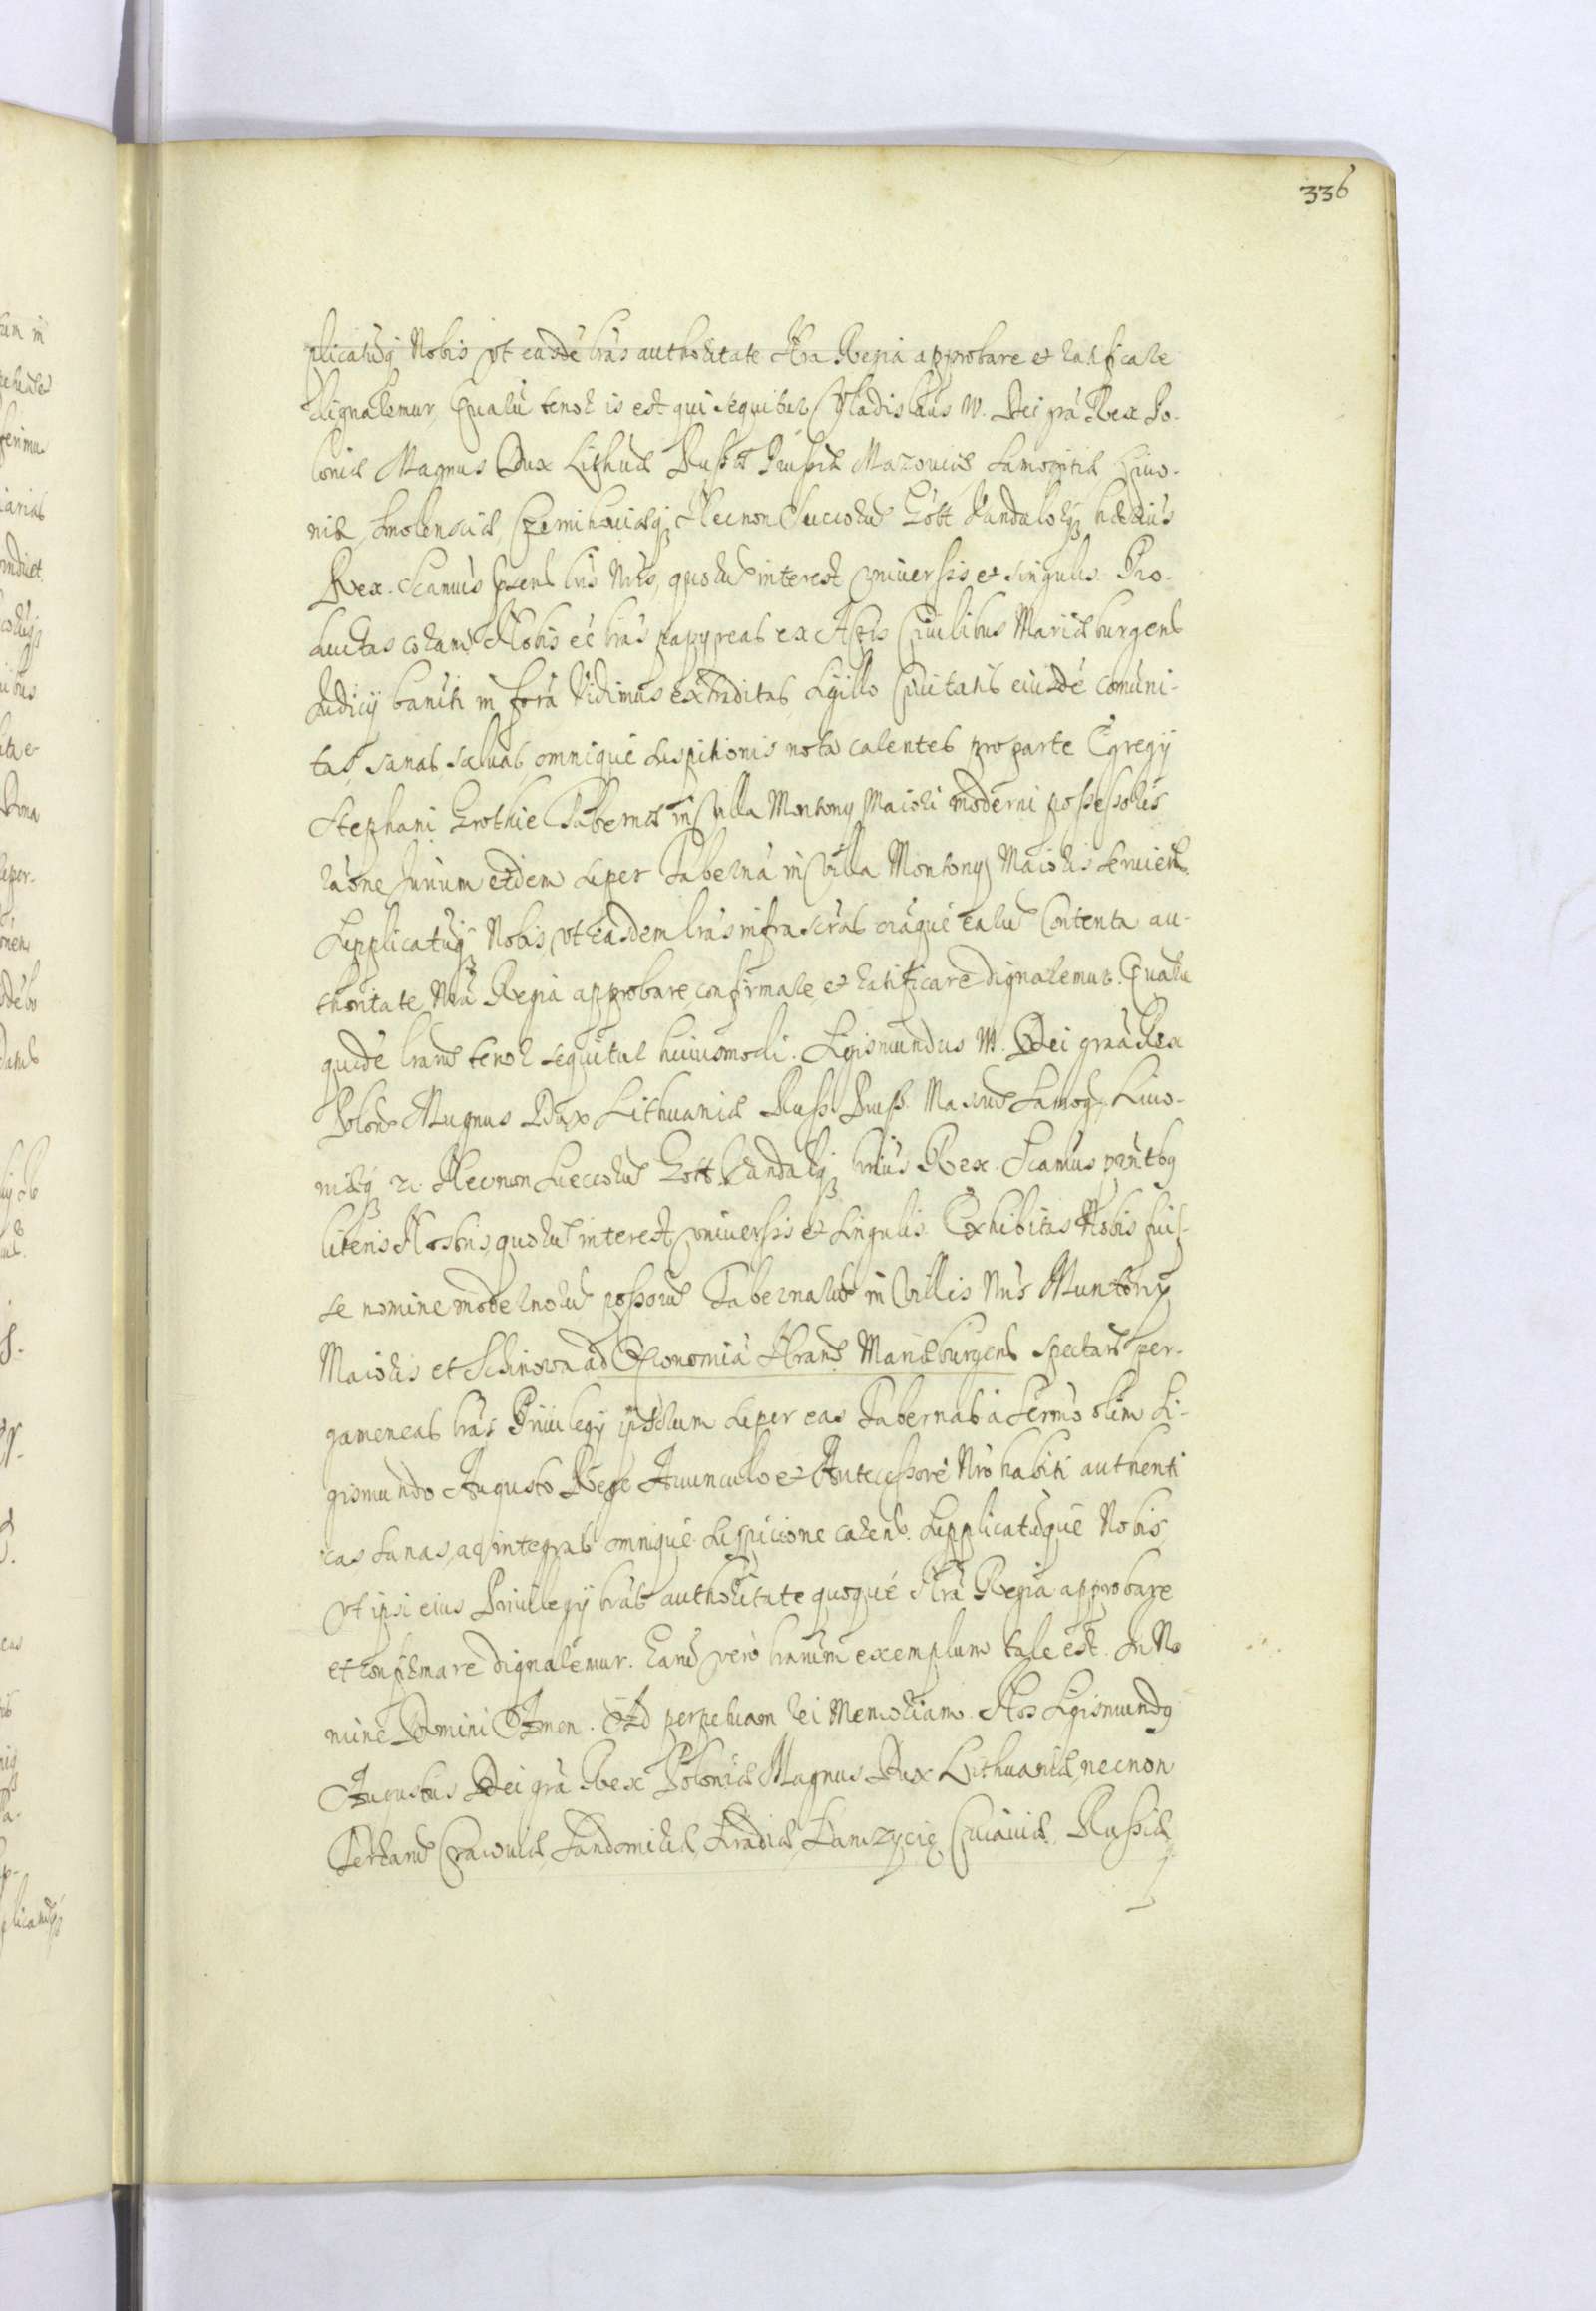 336
plicatūq Nobis vt easdē lrās authoritate Nrā Regia approbare et ratificare
dignaremur, Qualū tenor is est qui sequitur Vladislaus IV. Dei grā Rex Po-
loniæ Magnus Dux Lithuæ Russiæ Prussiæ Mazouiæ Samogitiæ Liuo-
niæ, Smolensciæ, Czernihouiæq; Necnon Succorū Gott Vandalorūq; hæredius
Rex. Scamus pñtibs lris Nris, quorū interest vniuersis et singulis. Pro-
ductas coram Nobis eē lrās papyreas ex Actis Ciuilibus Mariæburgens
Judicij banīti in forā Vidimus extraditas, Sigillo Ciuitatis eiusdē comuni-
tas, sanas, saluas, omnique suspitionis nota carentes pro parte Egregij
Stephani Grothie Tabernæ in Villa Montowy Maiori moderni possessoris
raōne Jurium eidem super Tabernā in Villa Montowy Maioris seruien.
Supplicatūq; Nobis, vt easdem lrās infrascrās oīaque earū Contenta au-
thoritate Nrā Regia approbare, confirmare, et ratificare dignaremur. Qualū
quidē lrarū tenor sequitur huiusmodi. Sigismundus III. Dei graā Rex
Polon. Magnus Dux Lithuaniæ Russ. Pruss. Masouiæ Samog. Liuo-
niæq; zc. Necnon Sueccorū Gott. Vandalq; hrius Rex. Scamus pñtbq
literis Nostris, quorū interest vniuersis et singulis. Exhibitas Nobis fuis-
se nomine modernorū possorū Tabernarū in Villis Nris Muntowy
Maioris et Schinowa ad Œconomiā Nram Mariæburgens spectan. per-
gameneas lrās Priuilegij ipsorum super eas Tabernas à Sermo olim Si-
gismundo Augusto Rege Auunculo et Antecessore Nro habiti authenti
cas sanas, ac integras omnique suspicione caren. Supplicatūque Nobis,
vt ipsi eius Priuilegij lras authoritate quoque Nrā Regia approbare
et confirmare dignaremur. Earū vero lrarum exemplum tale est. In No
mine Domini Amen. Ad perpetuam rei Memoriam. Nos Sigismundq
Augustus Dei grā Rex Poloniæ Magnus Dux Lithuaniæ, necnon
Terrarū Cracouiæ, Sandomiriæ, Siradiæ, Lanczycię Cuiauiæ, Russiæ